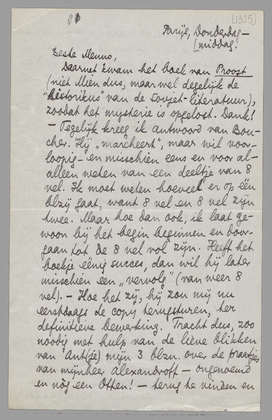 81
[1325]
Parijs, Donderdag-
(middag.
Beste Menno,
Daarnet kwam het boek van Proost
(niet Mien dus, maar wel degelijk de
"historicus" van de Sovjet-literatuur),
zoodat het mysterie is opgelost. Dank!
– Tegelijk kreeg ik antwoord van Bou-
cher. Hij "marcheert", maar wil voor-
loopig – en misschien eens en voor al –
alleen weten van een deeltje van 8
vel. Ik moet weten hoeveel er op één
blzij gaat, want 8 vel en 8 vel zijn
twee. Maar hoe dan ook, ik laat ge-
woon bij het begin beginnen en door-
gaan tot de 8 vel vol zijn. Heeft het
boekje eenig succes, dan wil hij later
misschien een "vervolg" (van weer 8
vel). – Hoe het zij, hij zou mij nu
eerstdaags de copy terugsturen, her
definitieve bewerking. Tracht dus, zoo
noodig met hulp van de lieve blikken
van Antje) mijn 3 blzn. over de
van mijnheer Alexandroff – ongenoemd
en nòg een Otten! – terug te vinden en